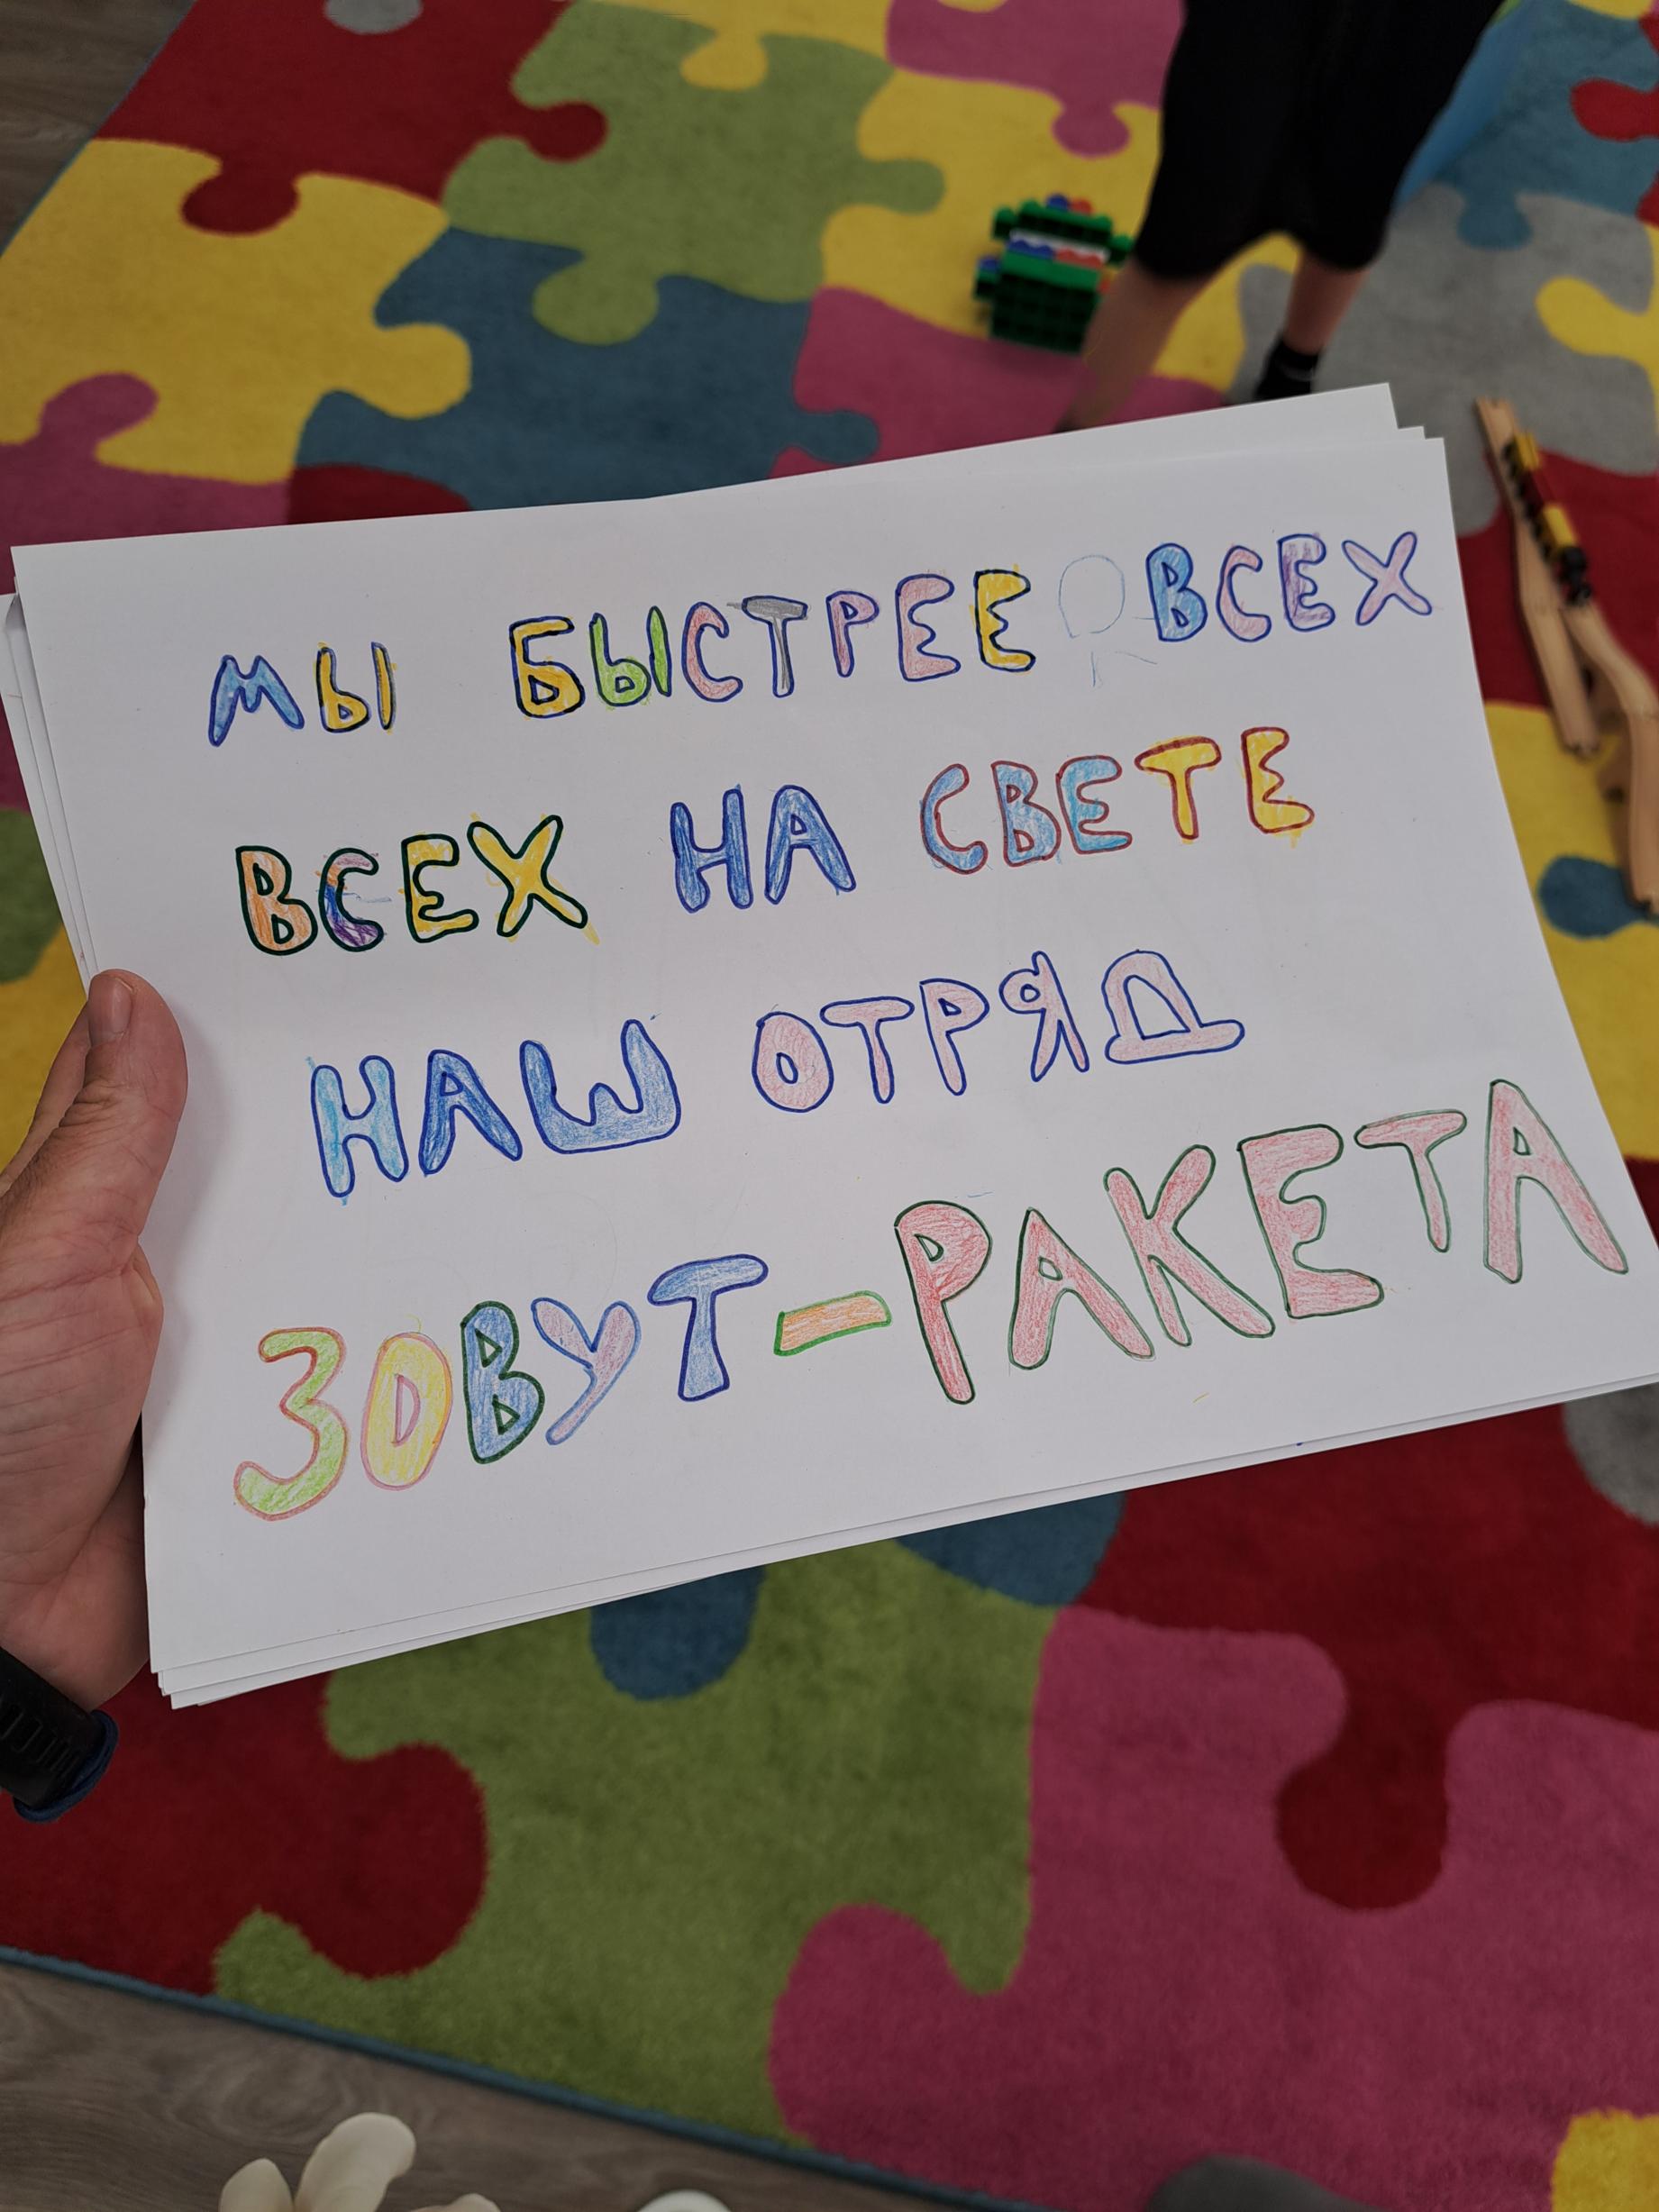 МЫ БЫСТРЕЕ ВСЕХ
ВСЕХ НА СВЕТЕ
НАШ ОТРЯД
ЗОВУТ-РАКЕТА